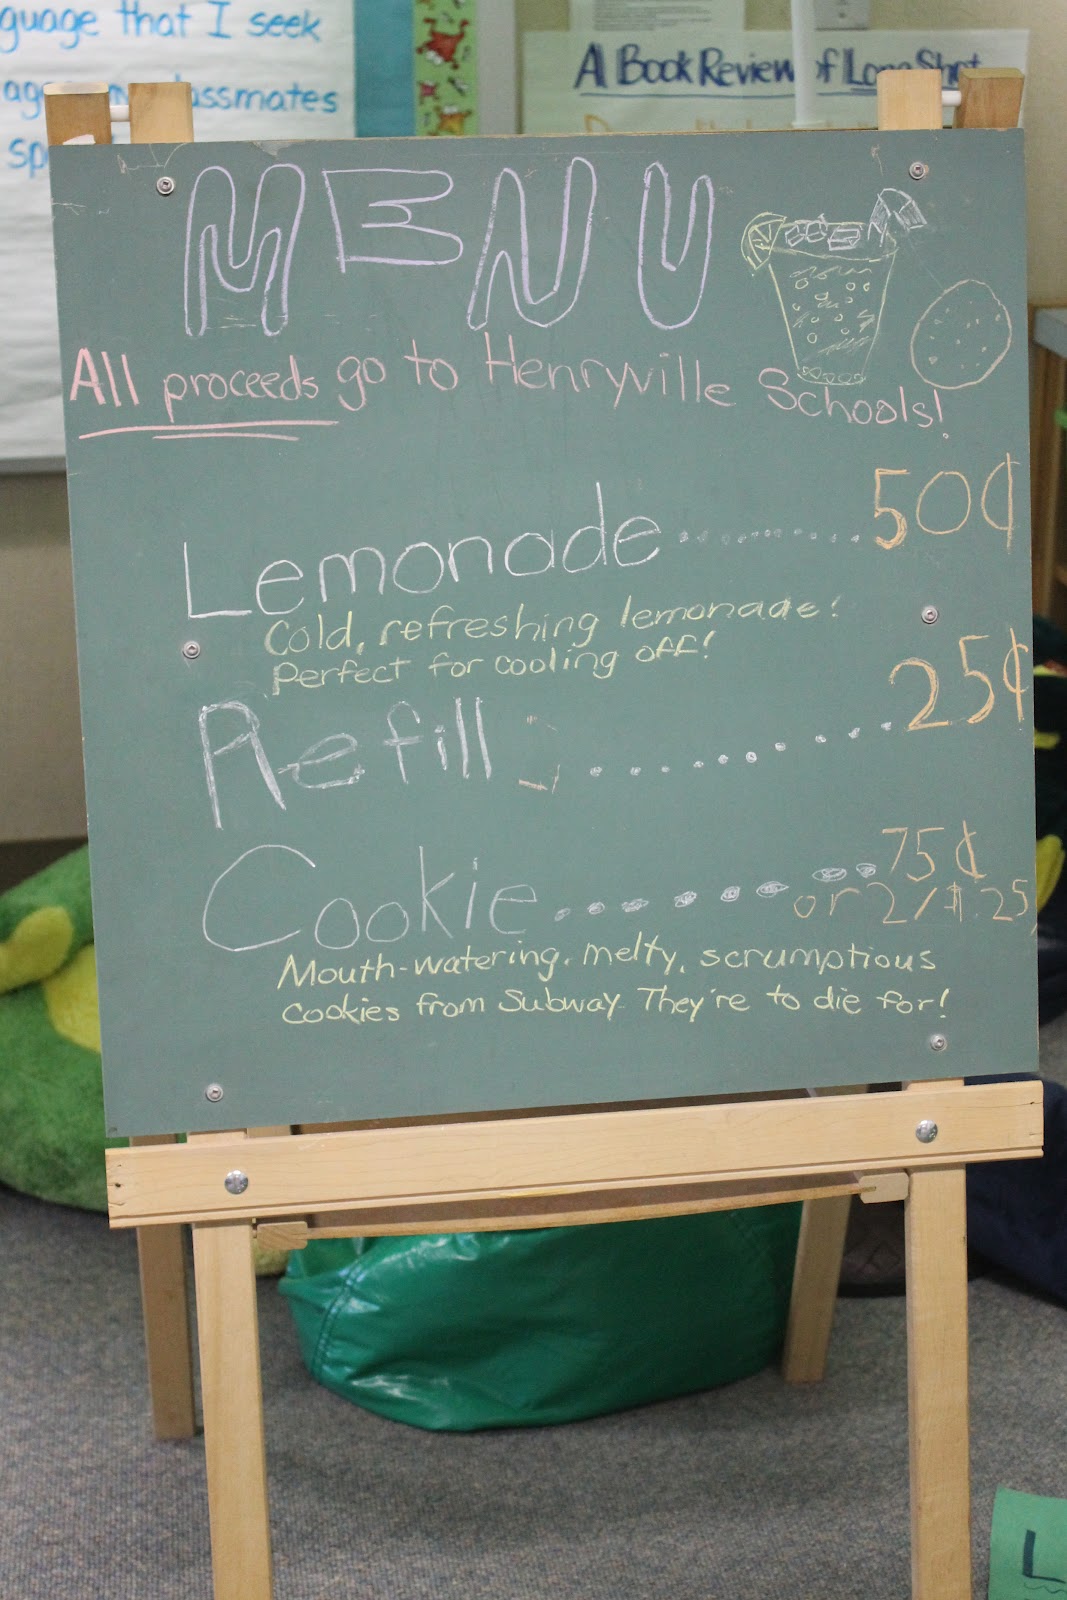 guage that I seek
classmates
A Book Review of Long Shot
MENU
All proceeds go to Henryville Schools!
Lemonade .......... 50¢
Cold, refreshing lemonade!
Perfect for cooling off!
Refill ......... 25¢
Cookie ....... 75¢
or 2/$1.25
Mouth-watering, melty, scrumptious
cookies from Subway. They're to die for!
L